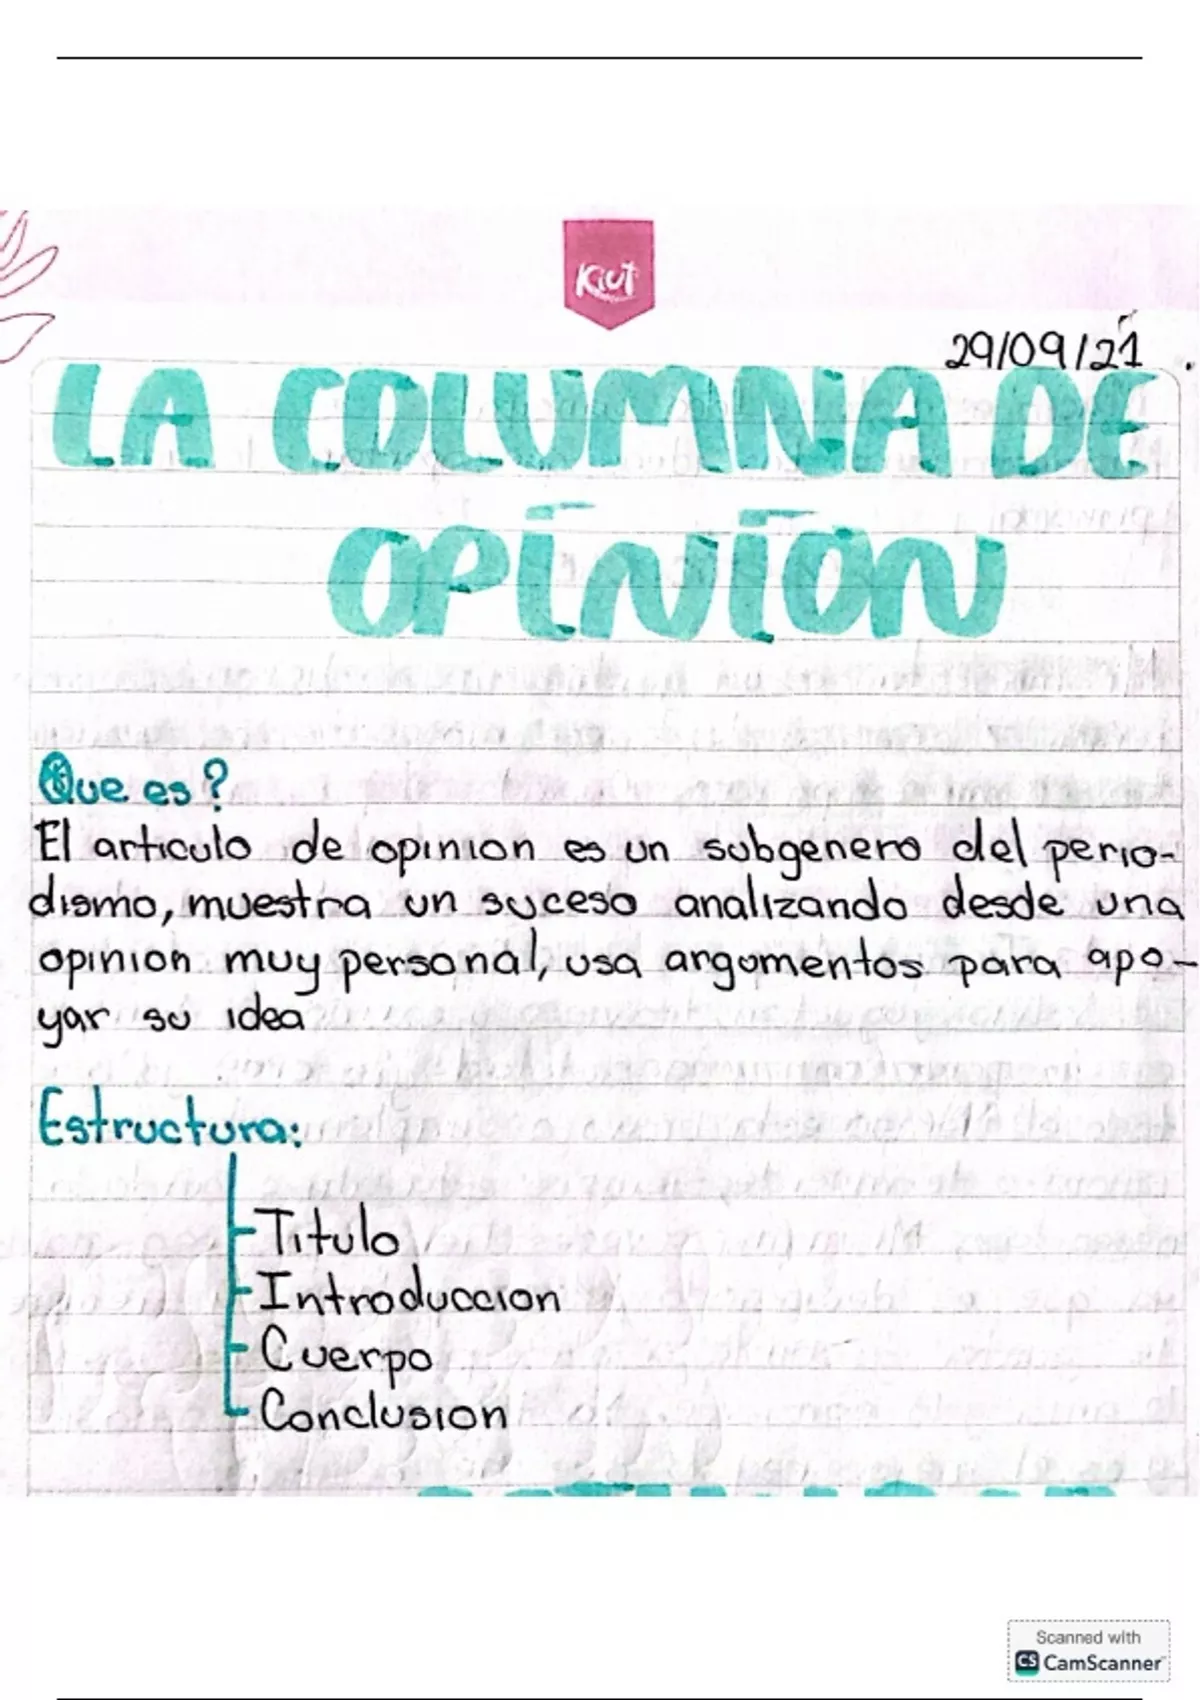 Kiut
29/09/21
LA COLUMNA DE
OPINION
Que es?
El articulo de opinion es un subgenero del perio-
dismo, muestra un suceso analizando desde una
opinion muy personal, usa argumentos para apo-
yar su idea
Estructura:
Titulo
Introduccion
Cuerpo
Conclusion
Scanned with
CS CamScanner